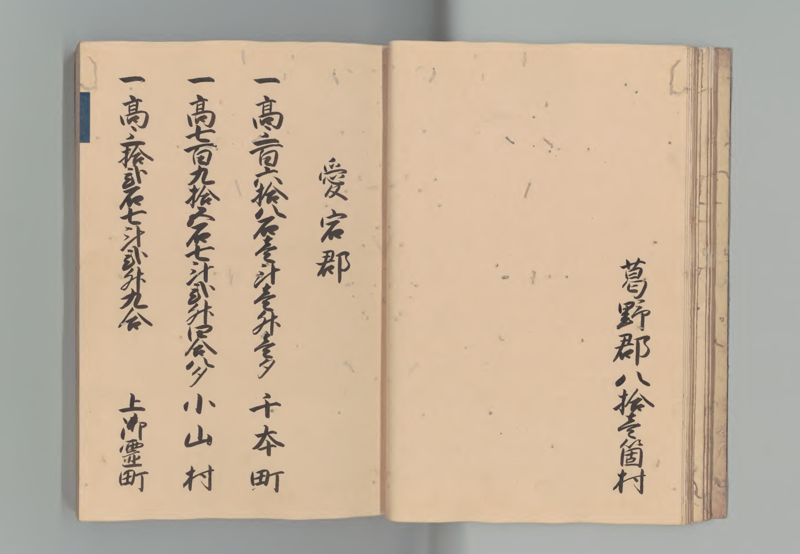 葛野郡八拾壱箇村
愛宕郡
一高三百六拾八石壱斗壱升壱夕 千本町
一高七百九拾五石七斗弐升四合八夕 小山村
一高三拾弐石七斗弐升九合 上御霊町